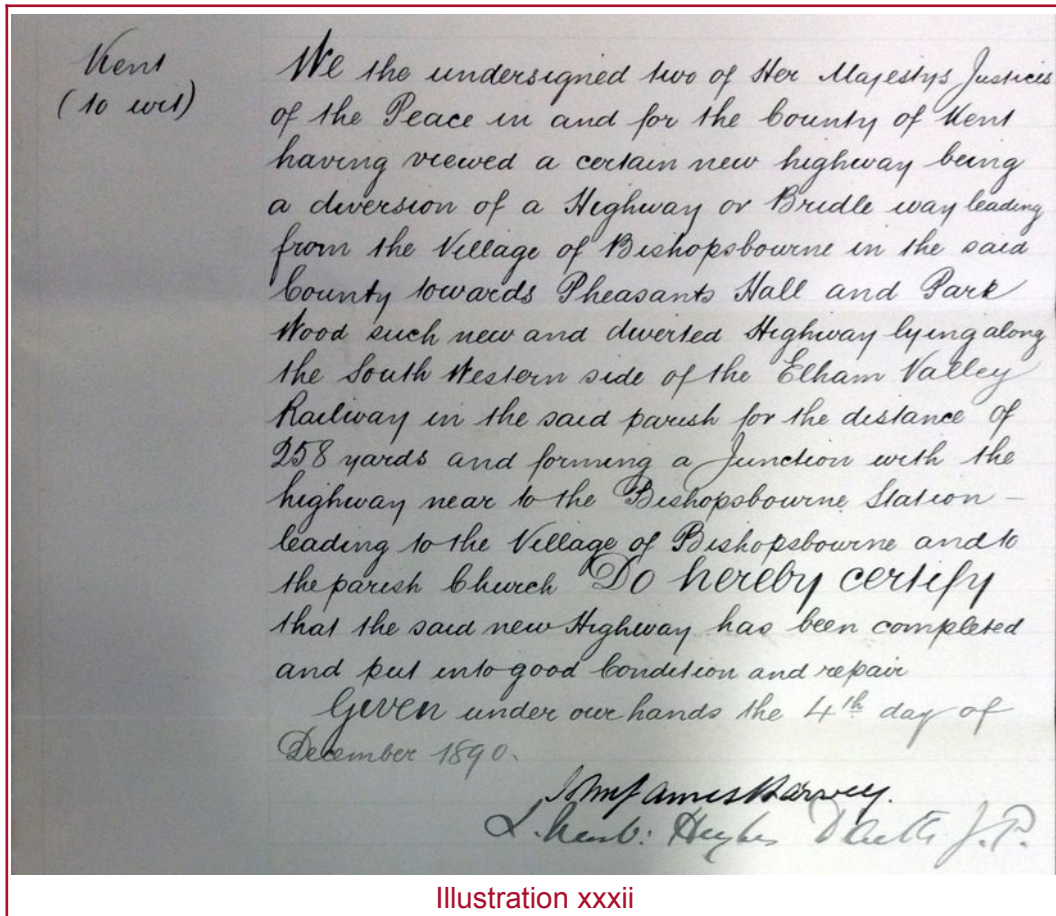 Kent
(to wit)
We the undersigned two of Her Majestys Justices
of the Peace in and for the County of Kent
having viewed a certain new highway being
a diversion of a Highway or Bridle way leading
from the Village of Bishopsbourne in the said
County towards Pheasants Hall and Park
Wood such new and diverted Highway lying along
the South Western side of the Elham Valley
Railway in the said parish for the distance of
258 yards and forming a Junction with the
highway near to the Bishopsbourne Station –
leading to the Village of Bishopsbourne and to
the parish Church Do hereby certify
that the said new Highway has been completed
and put into good Condition and repair
Given under our hands the 4th day of
December 1890.
John James Harvey.
Hughes J.P.
Illustration xxxii